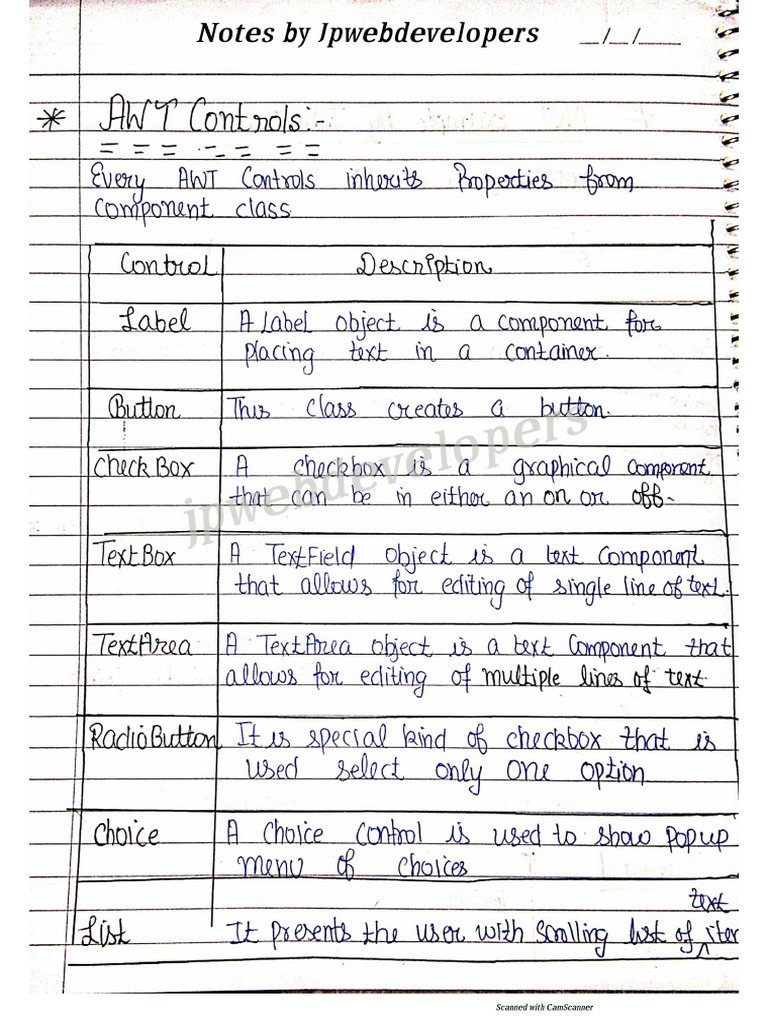 Notes by Jpwebdevelopers __/__/____
* AWT Controls:-
Every AWT Controls inherits Properties from
Component class
Control Description
Label A Label object is a component for
placing text in a container.
Button This class creates a button.
CheckBox A checkbox is a graphical component
that can be in either an on or off.
TextBox A TextField object is a text component
that allows for editing of single line of text.
TextArea A TextArea object is a text Component that
allows for editing of multiple lines of text.
RadioButton It is special kind of checkbox that is
used select only one option
Choice A Choice Control is used to show popup
menu of Choices
text
List It presents the user with Scrolling list of ^ iter
jpwebdevelopers
Scanned with CamScanner